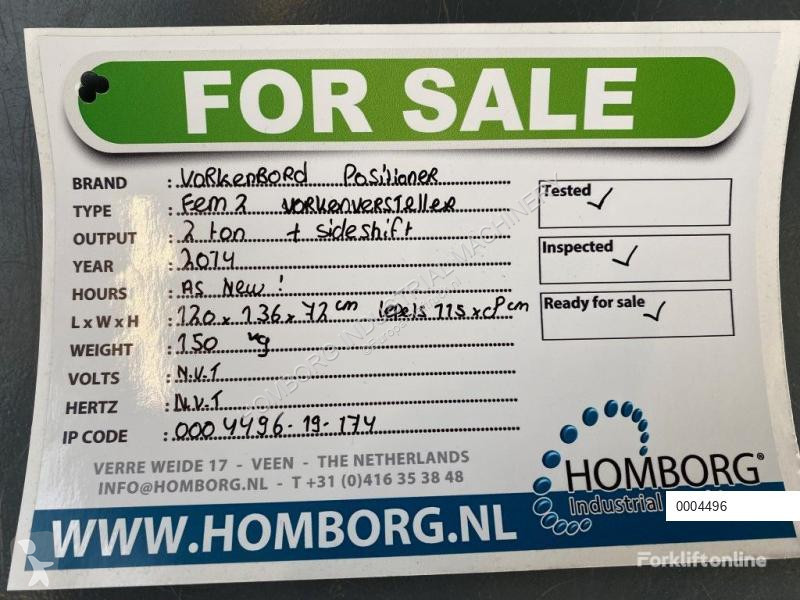 FOR SALE
BRAND : Vorkenbord Positioner
TYPE : Fem 2 vorkenversteller
OUTPUT : 2 ton + sideshift
YEAR : 2014
HOURS : As New!
L x W x H : 120 x 136 x 72 cm lepels 115 x cm
WEIGHT : 150 kg
VOLTS : N.V.T
HERTZ : N.V.T
IP CODE : 0004496-19-174
Tested ✓
Inspected ✓
Ready for sale ✓
VERRE WEIDE 17 - VEEN - THE NETHERLANDS
INFO@HOMBORG.NL - T +31 (0)416 35 38 48
HOMBORG®
Industrial
0004496
WWW.HOMBORG.NL
HOMBORG INDUSTRIAL MACHINERY
Forkliftonline